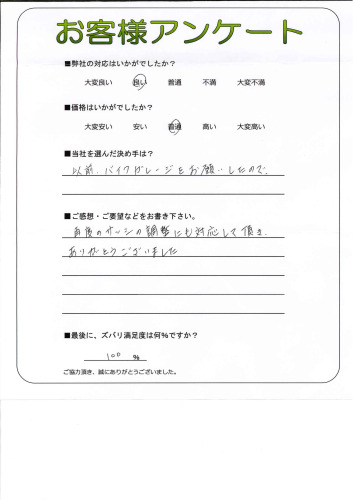 お客様アンケート
■弊社の対応はいかがでしたか?
大変良い 良い 普通 不満 大変不満
■価格はいかがでしたか?
大変安い 安い 普通 高い 大変高い
■当社を選んだ決め手は?
以前、バイクガレージをお願いしたので、
■ご感想・ご要望などをお書き下さい。
角度のサッシの調整にも対応して頂き、
ありがとうございました
■最後に、ズバリ満足度は何%ですか?
100 %
ご協力頂き、誠にありがとうございました。